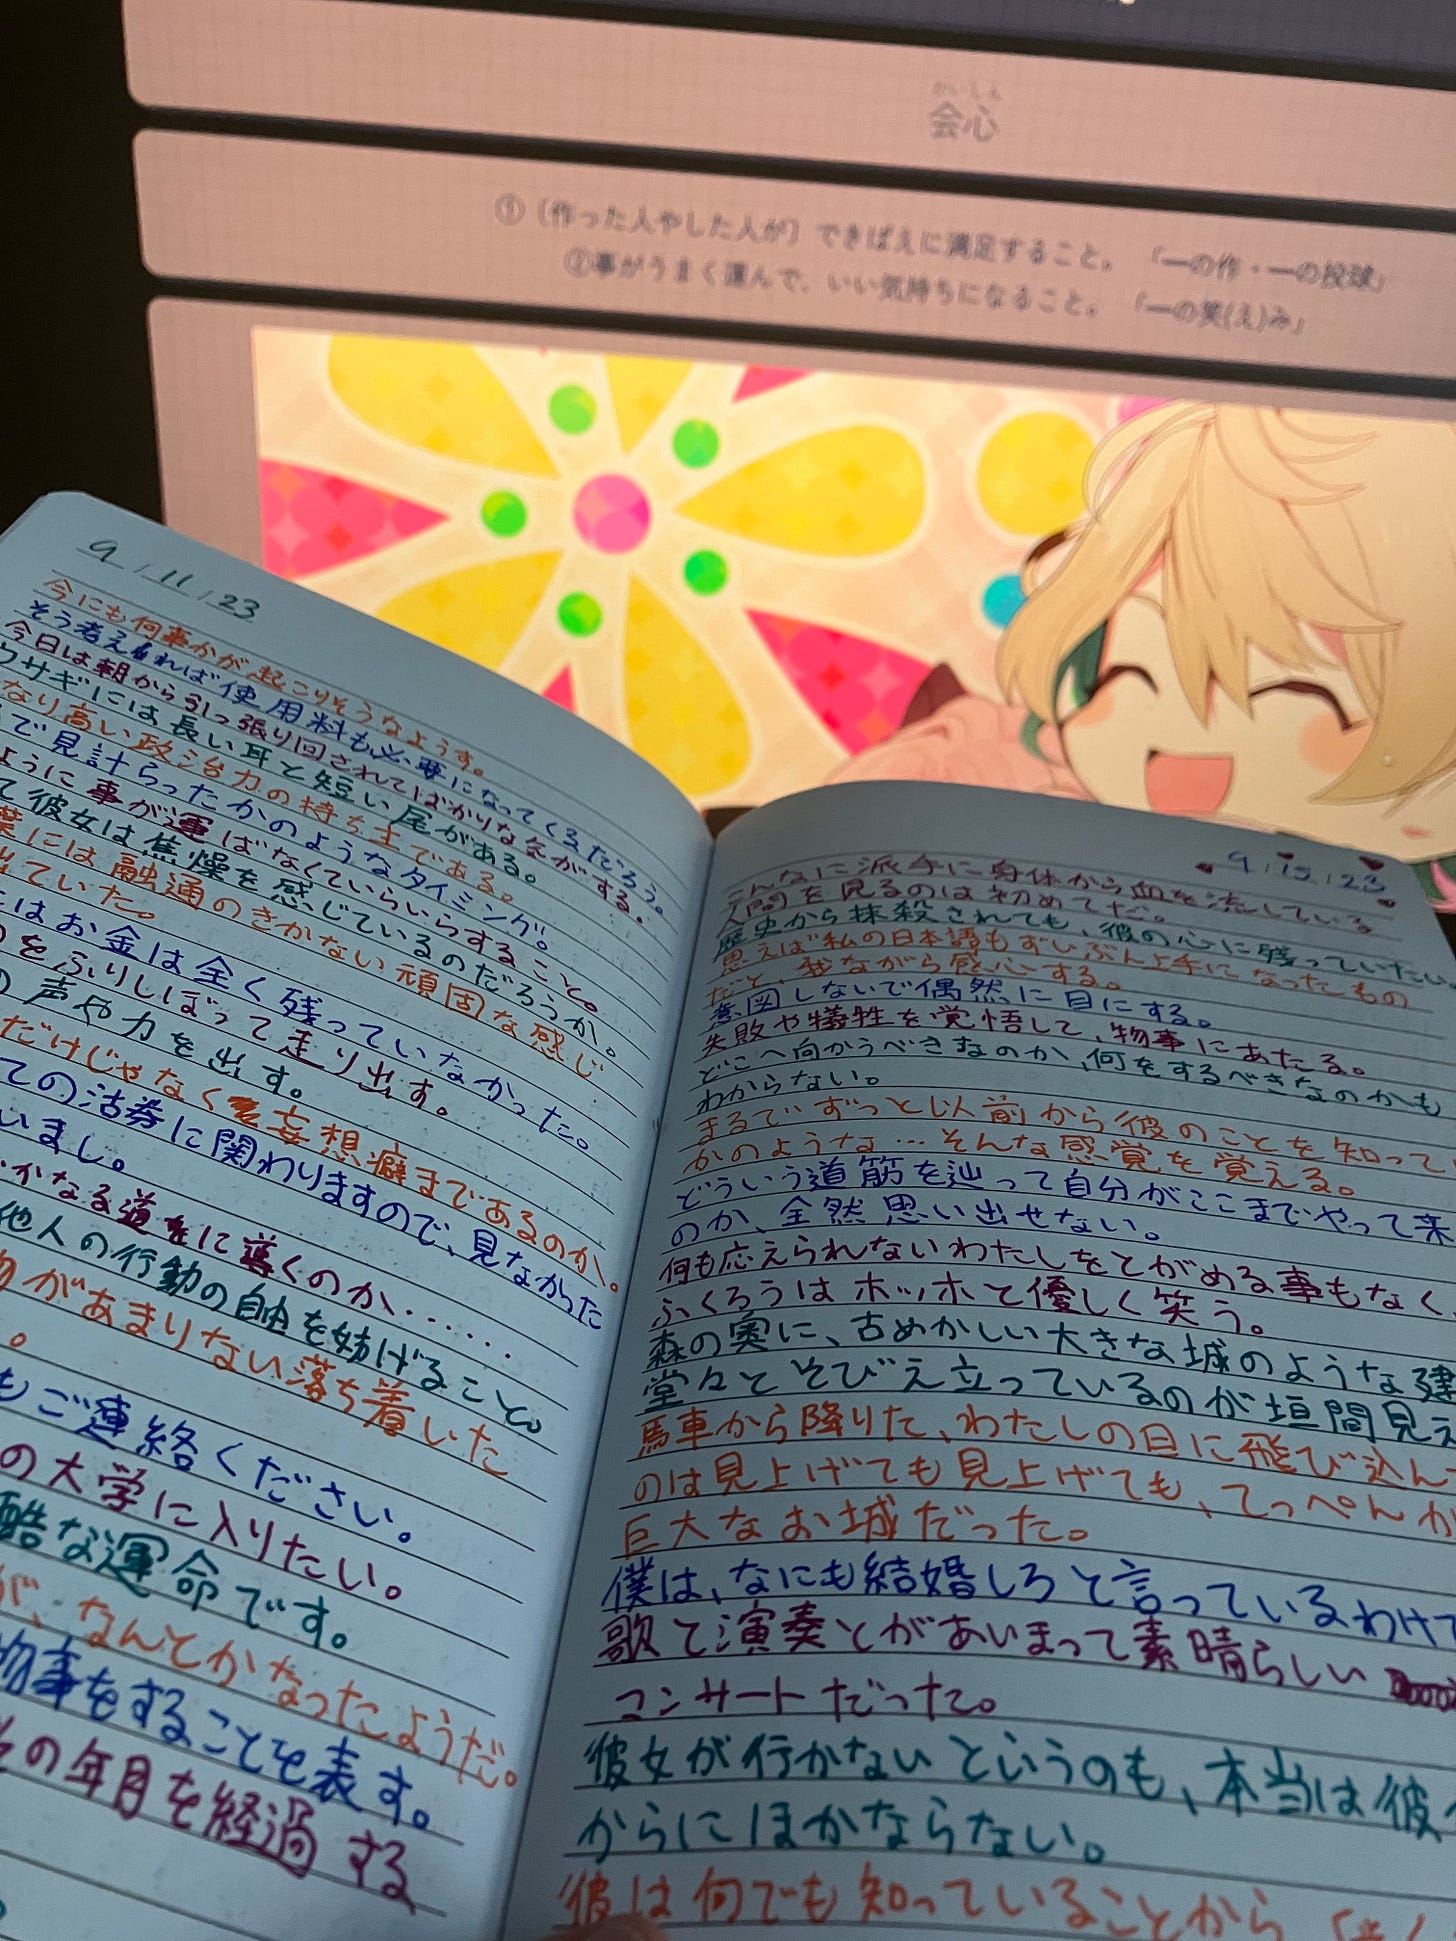 かいしん
会心
①（作った人やした人が）できばえに満足すること。「一の作・一の投球」
②事がうまく運んで、いい気持ちになること。「一の笑(え)み」
9/11/23
今にも何事かが起こりそうなようす。
そう考えれば使用料も必要になってくるだろう。
今日は朝から引っ張り回されてばかりな気がする。
ウサギには長い耳と短い尾がある。
なり高い政治力の持ち主である。
で見計らったかのようなタイミング。
ように事が運ばなくていらいらすること。
て彼女は焦燥を感じているのだろうか。
葉には融通のきかない頑固な感じ
出ていた。
はお金は全く残っていなかった。
をふりしぼって走り出す。
の声や力を出す。
だけじゃなく妄想癖まであるのか。
ての沽券に関わりますので、見なかった
いまし。
かなる道をに導くのか.....
他人の行動の自由を妨げること。
物があまりない落ち着いた
。
もご連絡ください。
の大学に入りたい。
酷な運命です。
が、なんとかなったようだ。
物事をすることを表す。
の年月を経過する
9/15/23
こんなに派手に身体から血を流している
人間を見るのは初めてだ。
歴史から抹殺されても、彼の心に残っていたい
思えば私の日本語もずいぶん上手になったもの
だと、我ながら感心する。
意図しないで偶然に目にする。
失敗や犠牲を覚悟して、物事にあたる。
どこへ向かうべきなのか、何をするべきなのかも
わからない。
まるでずっと以前から彼のことを知って
かのような…そんな感覚を覚える。
どういう道筋を辿って自分がここまでやって来
のか、全然思い出せない。
何も応えられないわたしをとがめる事もなく
ふくろうはホッホと優しく笑う。
森の奥に、古めかしい大きな城のような建
堂々とそびえ立っているのが垣間見え
馬車から降りた、わたしの目に飛び込ん
のは見上げても見上げても、てっぺんが
巨大なお城だった。
僕は、なにも結婚しろと言っているわけ
歌と演奏とがあいまって素晴らしい
コンサートだった。
彼女が行かないというのも、本当は彼
からにほかならない。
彼は何でも知っていることから